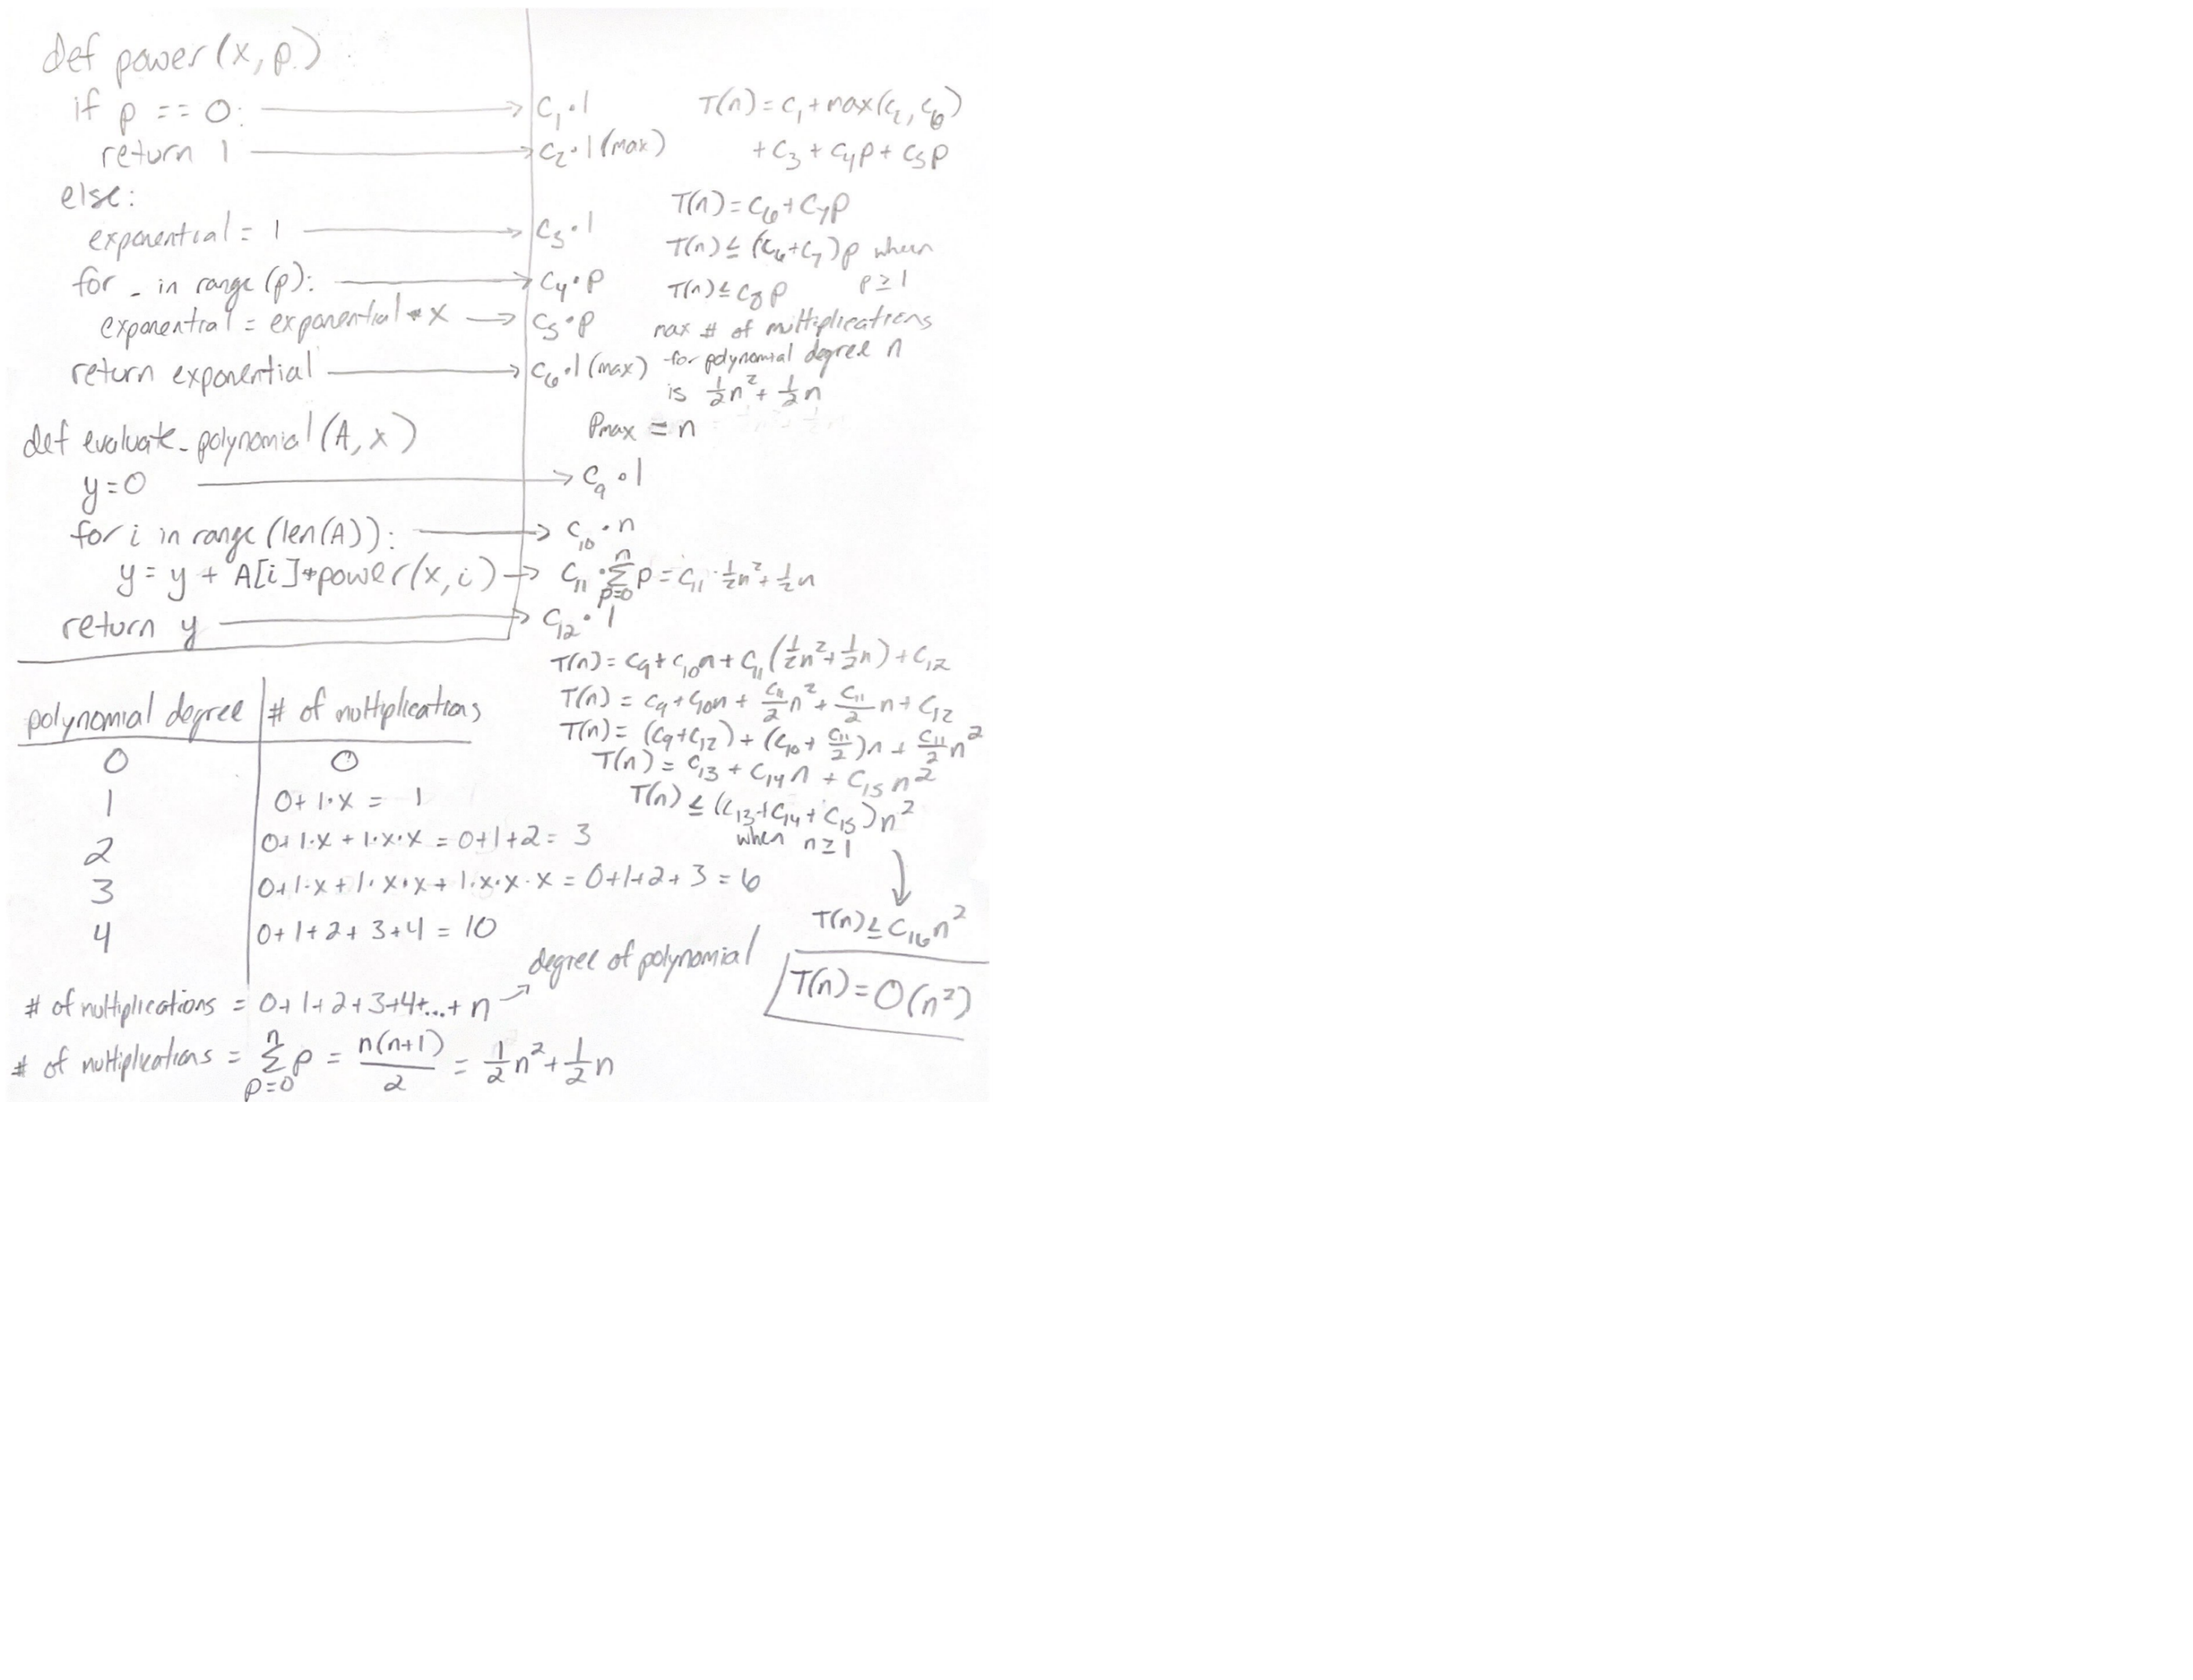 def power(x, p)
if p == 0: → C₁·1
return 1 → C₂·1 (max)
else:
exponential = 1 → C₃·1
for _ in range(p): → C₄·p
exponential = exponential * x → C₅·p
return exponential → C₆·1 (max)
T(n) = C₁ + max(C₂, C₆)
+ C₃ + C₄p + C₅p
T(n) = C₆ + C₇p
T(n) ≤ (C₆+C₇)p when
p ≥ 1
T(n) ≤ C₈p
max # of multiplications
for polynomial degree n
is ½n² + ½n
Pmax = n
def evaluate_polynomial(A, x)
y=0 → C₉·1
for i in range(len(A)): → C₁₀·n
y = y + A[i]*power(x, i) → C₁₁·∑ₚ₌₀ⁿ p = C₁₁·½n²+½n
return y → C₁₂·1
T(n) = C₉ + C₁₀n + C₁₁(½n²+½n) + C₁₂
T(n) = C₉ + C₁₀n + C₁₁/2 n² + C₁₁/2 n + C₁₂
T(n) = (C₉+C₁₂) + (C₁₀ + C₁₁/2)n + C₁₁/2 n²
T(n) = C₁₃ + C₁₄n + C₁₅n²
T(n) ≤ (C₁₃+C₁₄+C₁₅)n²
when n ≥ 1
T(n) ≤ C₁₆n²
T(n) = O(n²)
polynomial degree | # of multiplications
0 0
1 0+1·x = 1
2 0+1·x+1·x·x = 0+1+2 = 3
3 0+1·x+1·x·x+1·x·x·x = 0+1+2+3 = 6
4 0+1+2+3+4 = 10
# of multiplications = 0+1+2+3+4+...+n → degree of polynomial
# of multiplications = ∑ₚ₌₀ⁿ p = n(n+1)/2 = ½n²+½n